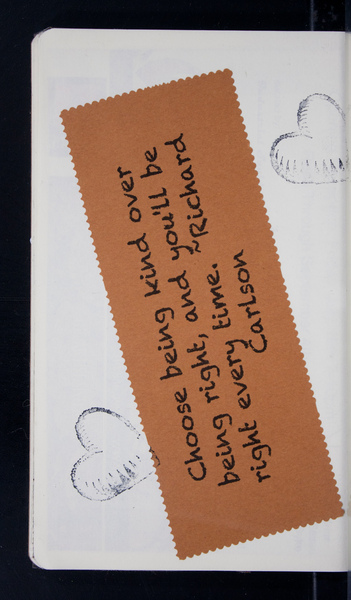 Choose being kind over
being right, and you'll be
right every time. ~Richard
Carlson